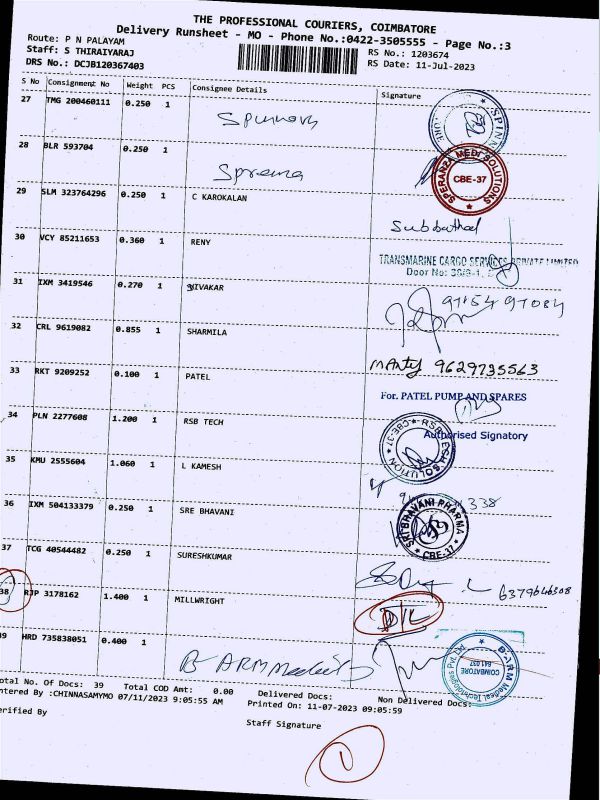 THE PROFESSIONAL COURIERS, COIMBATORE
Delivery Runsheet - MO - Phone No.:0422-3505555 - Page No.:3
Route: P N PALAYAM
RS No.: 1203674
Staff: S THIRAIYARAJ
RS Date: 11-Jul-2023
DRS No.: DCJB120367403
S No Consignment No Weight PCS Consignee Details Signature
27 TMG 200460111 0.250 1
28 BLR 593704 0.250 1
SPERANZA MEDI SOLUTIONS CBE-37
29 SLM 323764296 0.250 1 C KAROKALAN
30 VCY 85211653 0.360 1 RENY
TRANSMARINE CARGO SERVICES PRIVATE LIMITED
Door No:
31 IXM 3419546 0.270 1 JIVAKAR
32 CRL 9619082 0.855 1 SHARMILA
9629735563
33 RKT 9209252 0.100 1 PATEL
For. PATEL PUMP AND SPARES
Authorised Signatory
34 PLN 2277608 1.200 1 RSB TECH
RSB TECH SOLUTION CBE-37
35 KMU 2555604 1.060 1 L KAMESH
338
36 IXM 504133379 0.250 1 SRE BHAVANI
SRI BHAVANI PHARMA CBE-37
37 TCG 40544482 0.250 1 SURESHKUMAR
38 RJP 3178162 1.400 1 MILLWRIGHT
D/L
39 HRD 735838051 0.400 1
B ARM Medical Technologies Pvt. Ltd. COIMBATORE 641 037
Total No. Of Docs: 39 Total COD Amt: 0.00 Delivered Docs: Non Delivered Docs:
Entered By :CHINNASAMYMO 07/11/2023 9:05:55 AM Printed On: 11-07-2023 09:05:59
Verified By Staff Signature